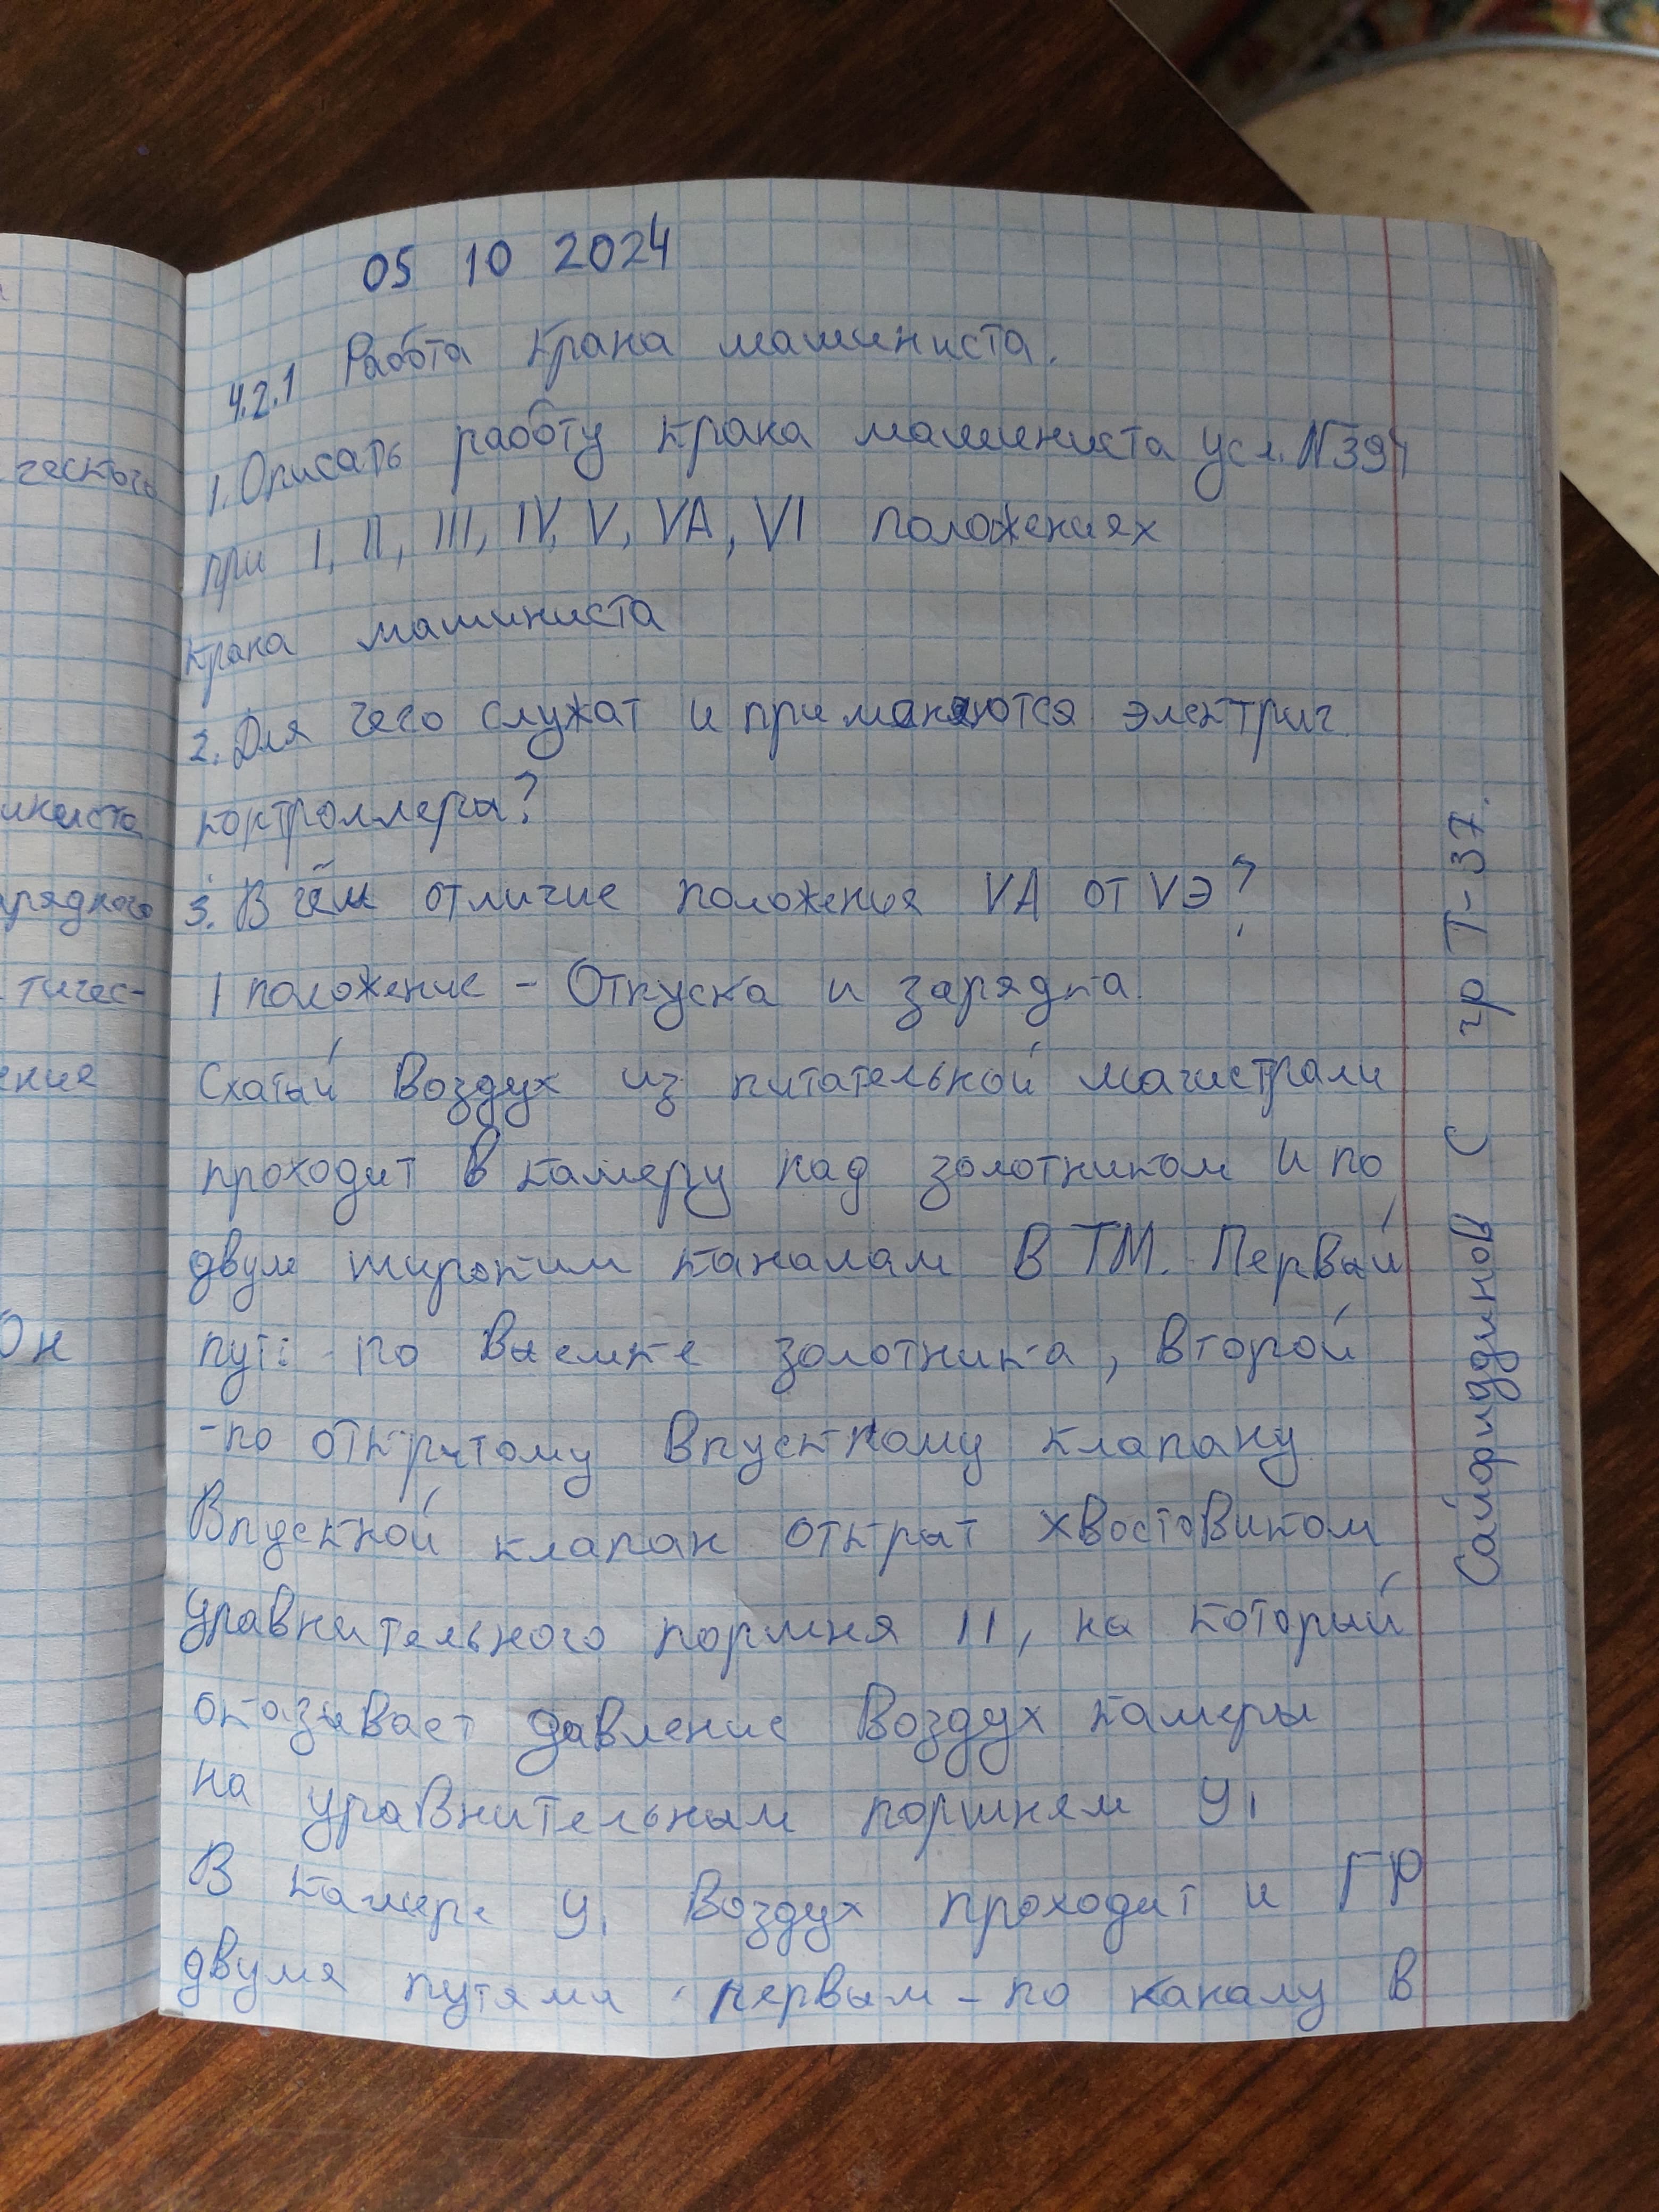 05 10 2024
4.2.1 Работа крана машиниста.
1. Описать работу крана машиниста усл. N394
при I, II, III, IV, V, VA, VI положениях
крана машиниста
2. Для чего служат и применяются электрич.
контроллеры?
3. В чём отличие положения VA от VЭ?
I положение - Отпуска и зарядка.
Схатый воздух из питательной магистрали
проходит в камеру над золотником и по
двум широким каналам в ТМ. Первый
путь по выемке золотника, второй
-по открытому впускному клапану
Впускной клапан открыт хвостовиком
уравнительного поршня 11, на который
оказывает давление воздух камеры
на уравнительным поршнем У1
В камере У1 воздух проходит и ГР
двумя путями первым - по каналу в
Сайфиддинов С гр Т-37.
ческого
иниста
тичес-
ение
Он